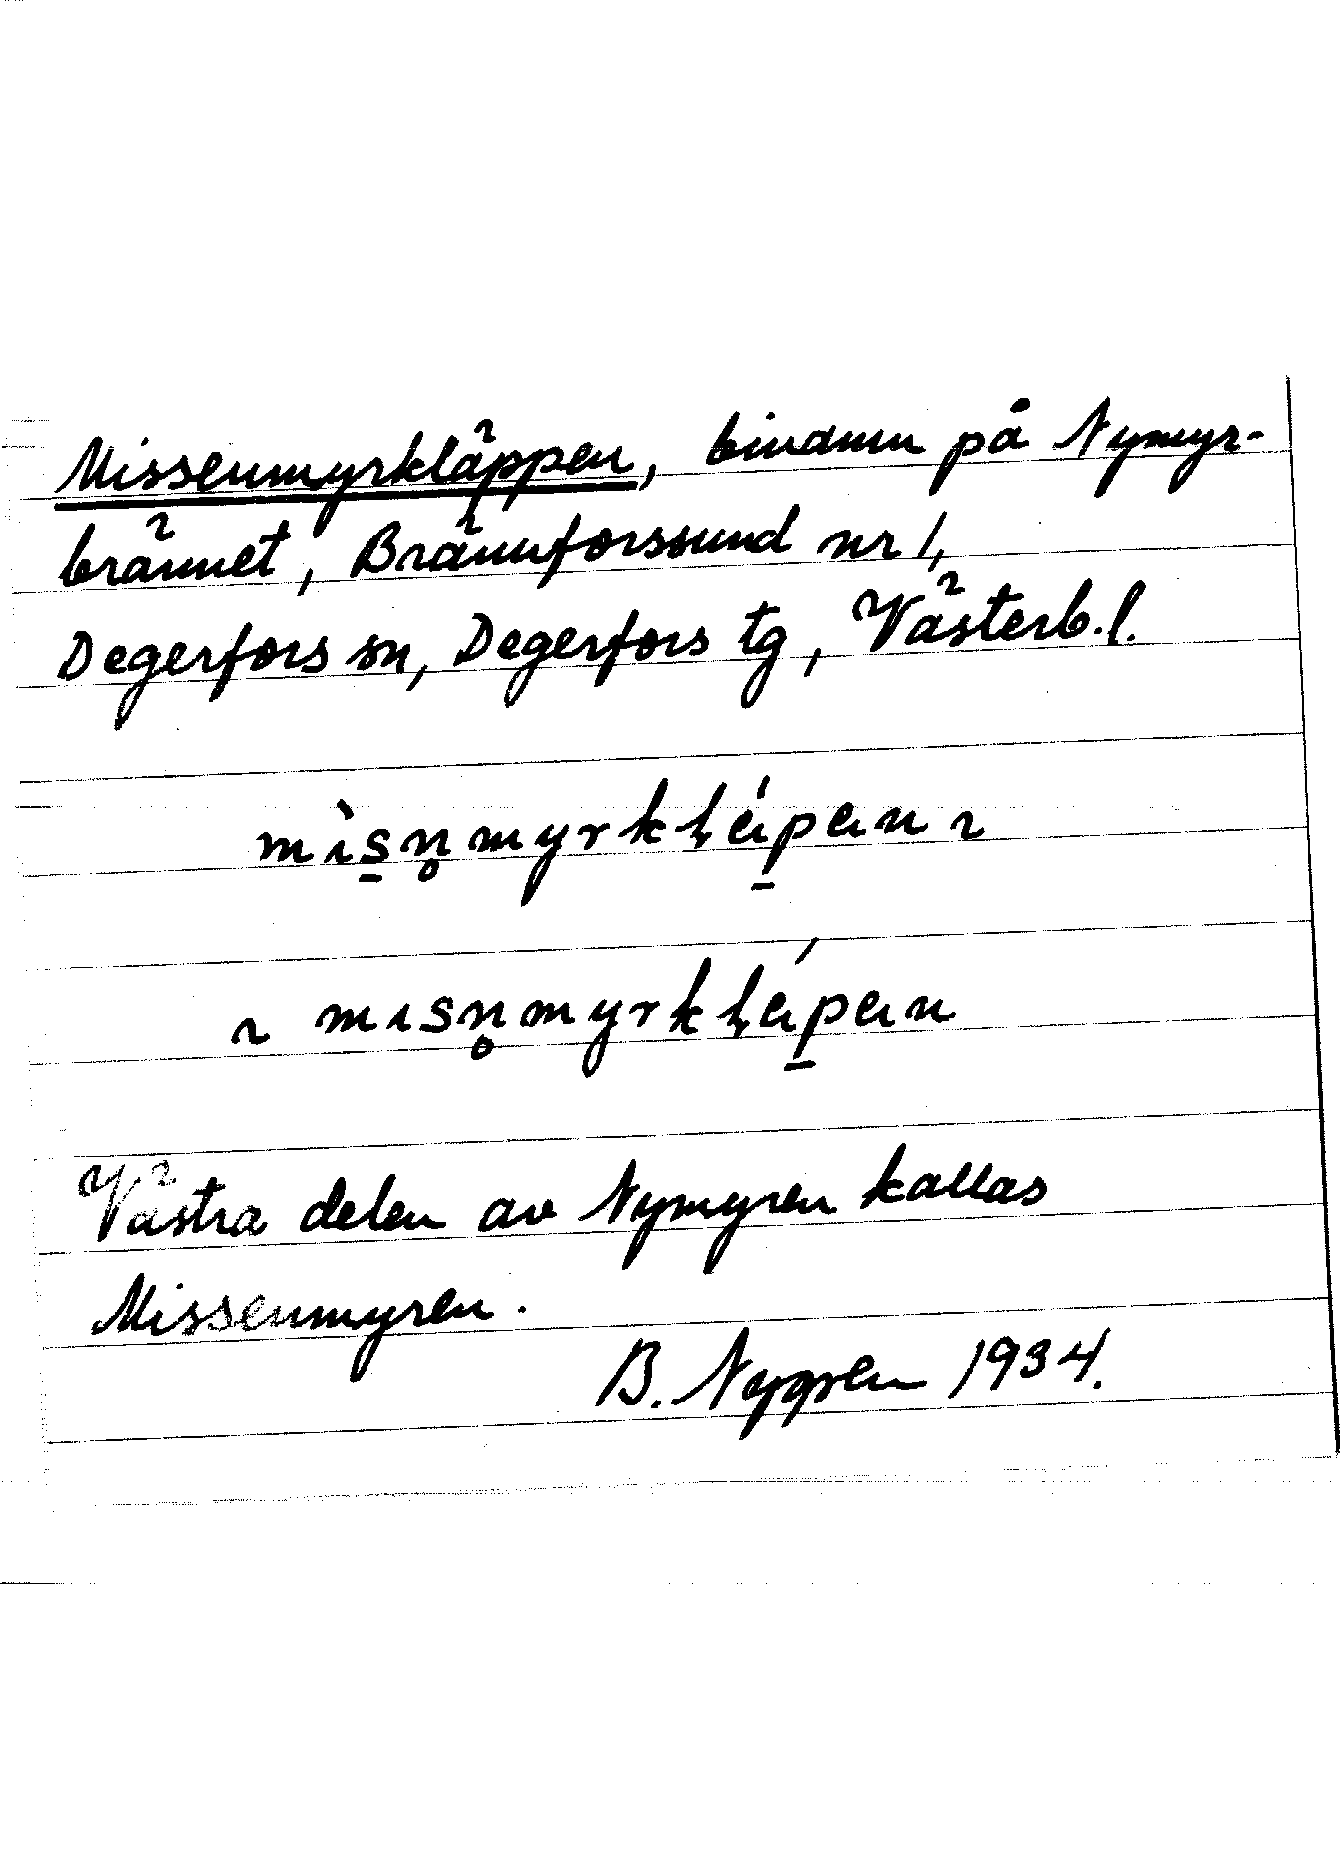 Missenmyrkläppen, bindamm på Nymyr-
brännet, Brännforssund nr 1,
Degerfors sn, Degerfors tg, Västerb.l.
Västra delen av Nymyren kallas
Missenmyren.
B. Nygren 1934.